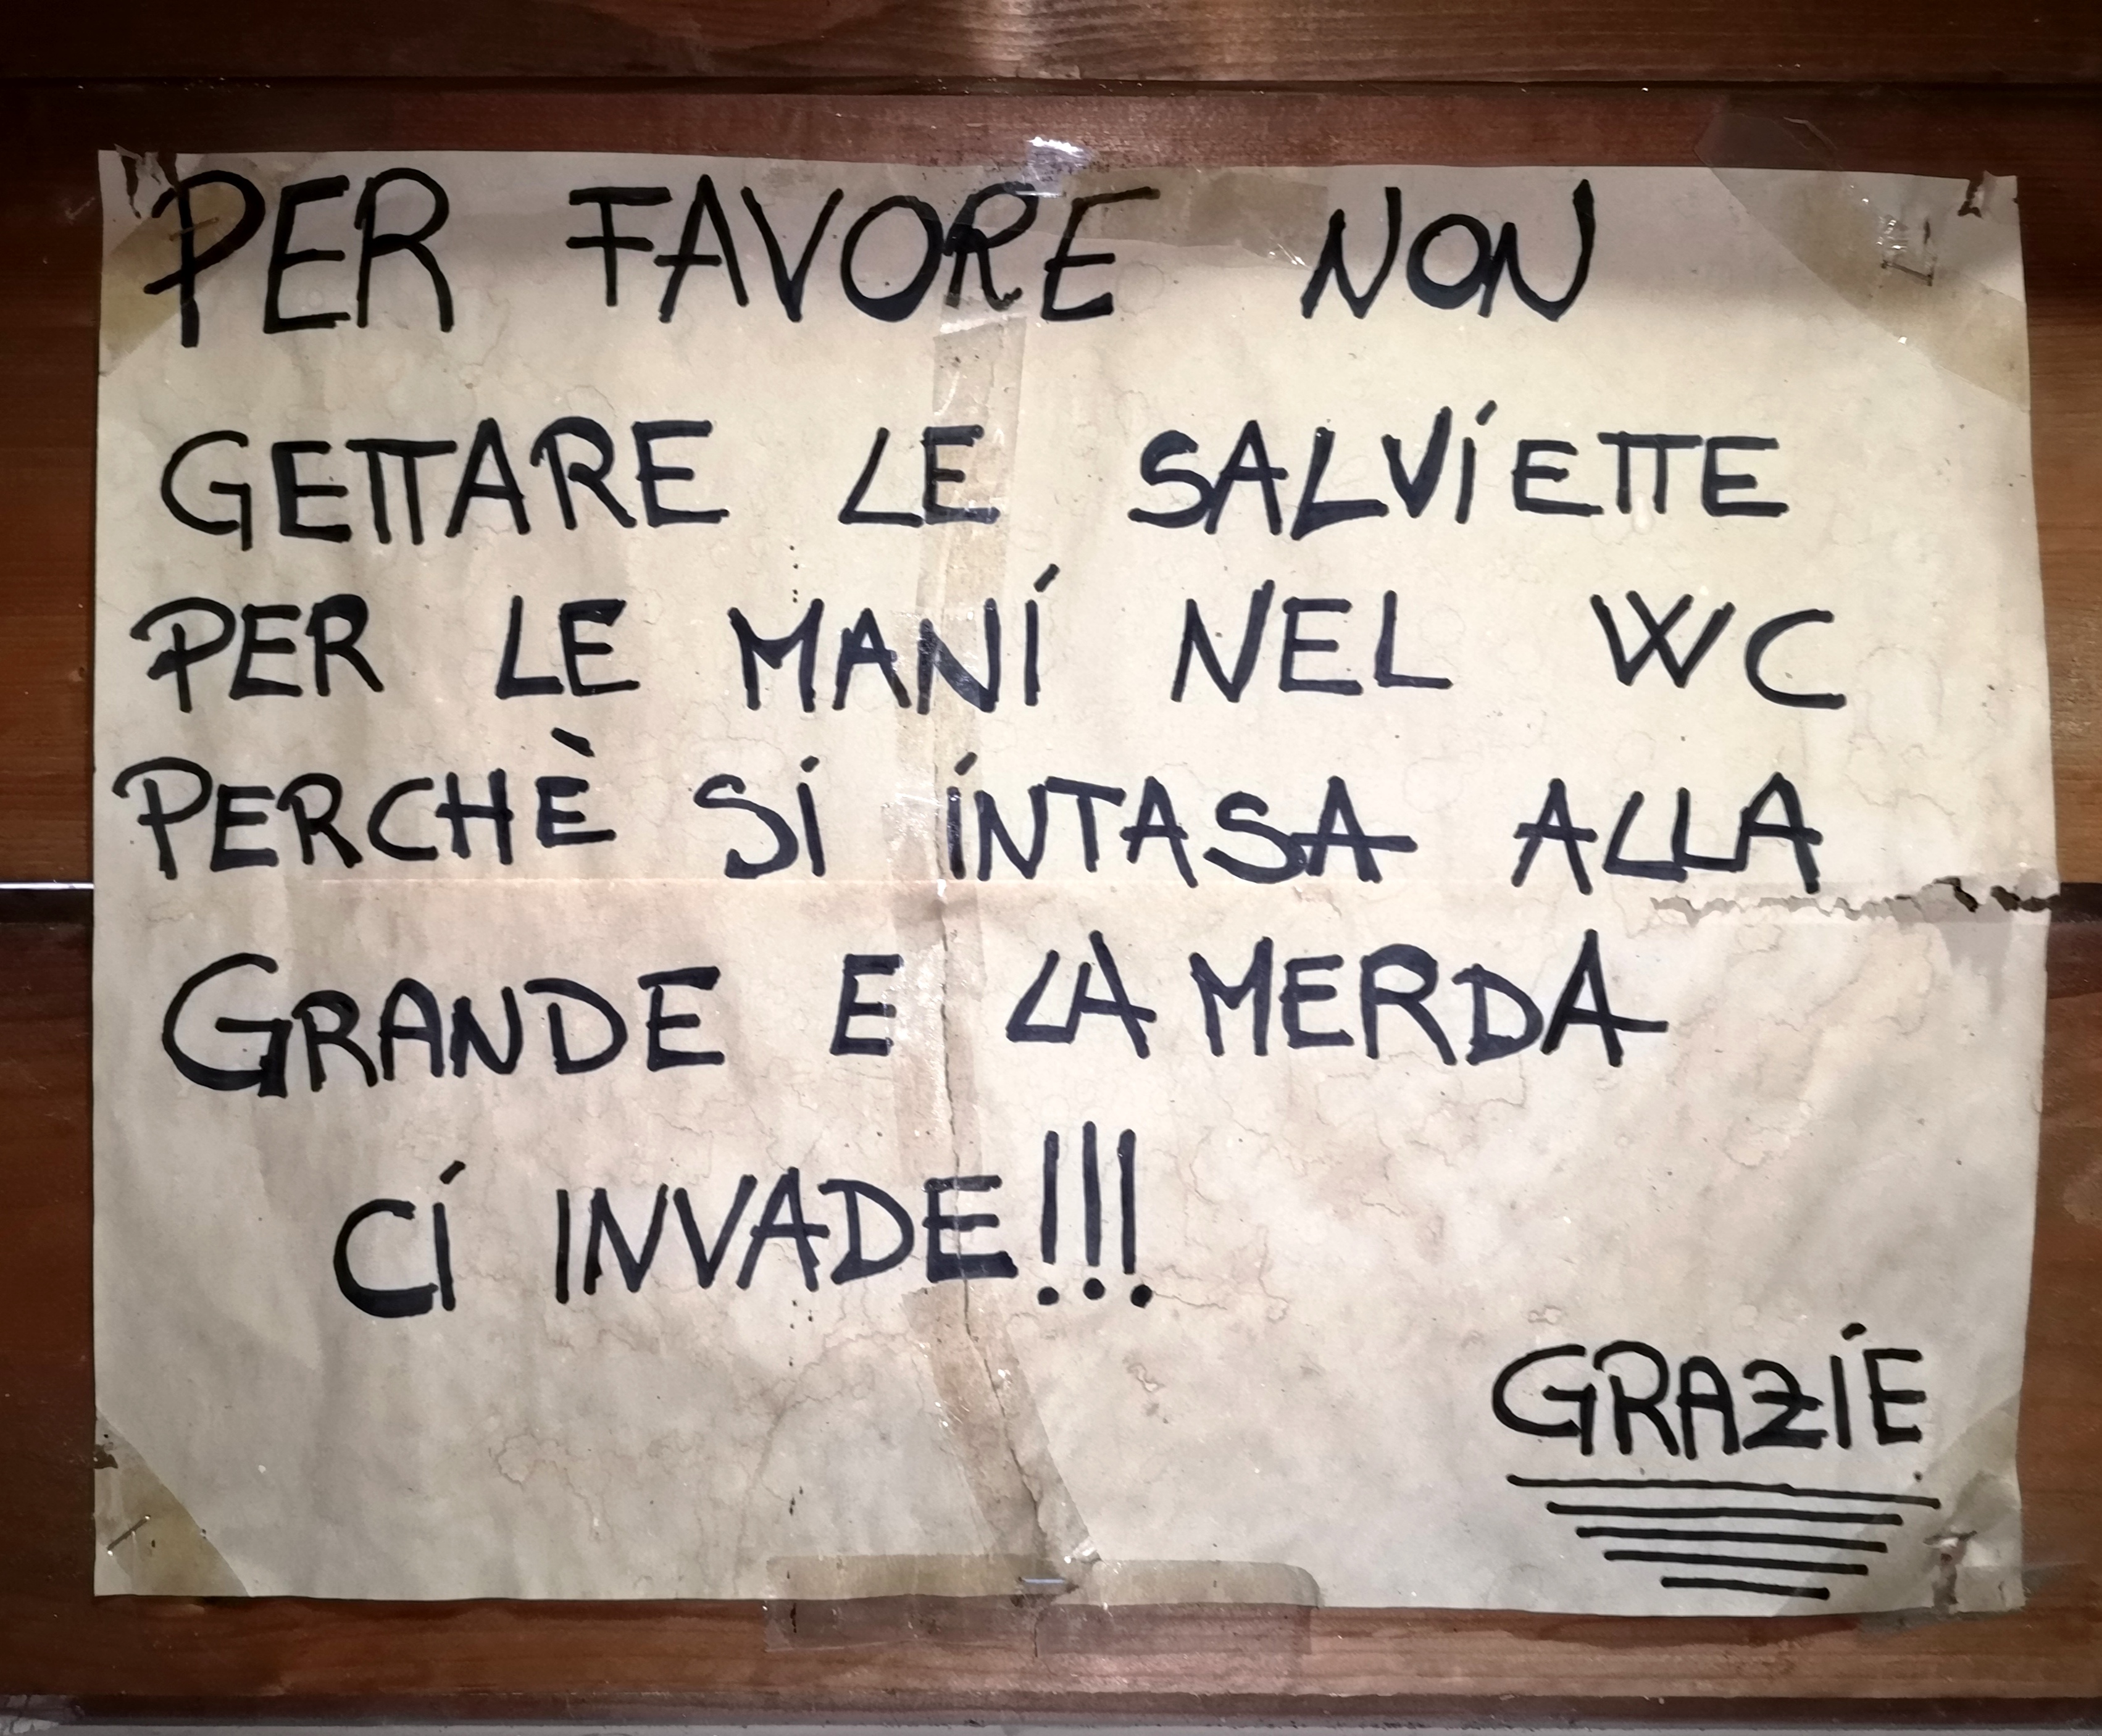 PER FAVORE NON
GETTARE LE SALVIETTE
PER LE MANI NEL WC
PERCHÈ SI INTASA ALLA
GRANDE E LA MERDA
CI INVADE!!!
GRAZIE